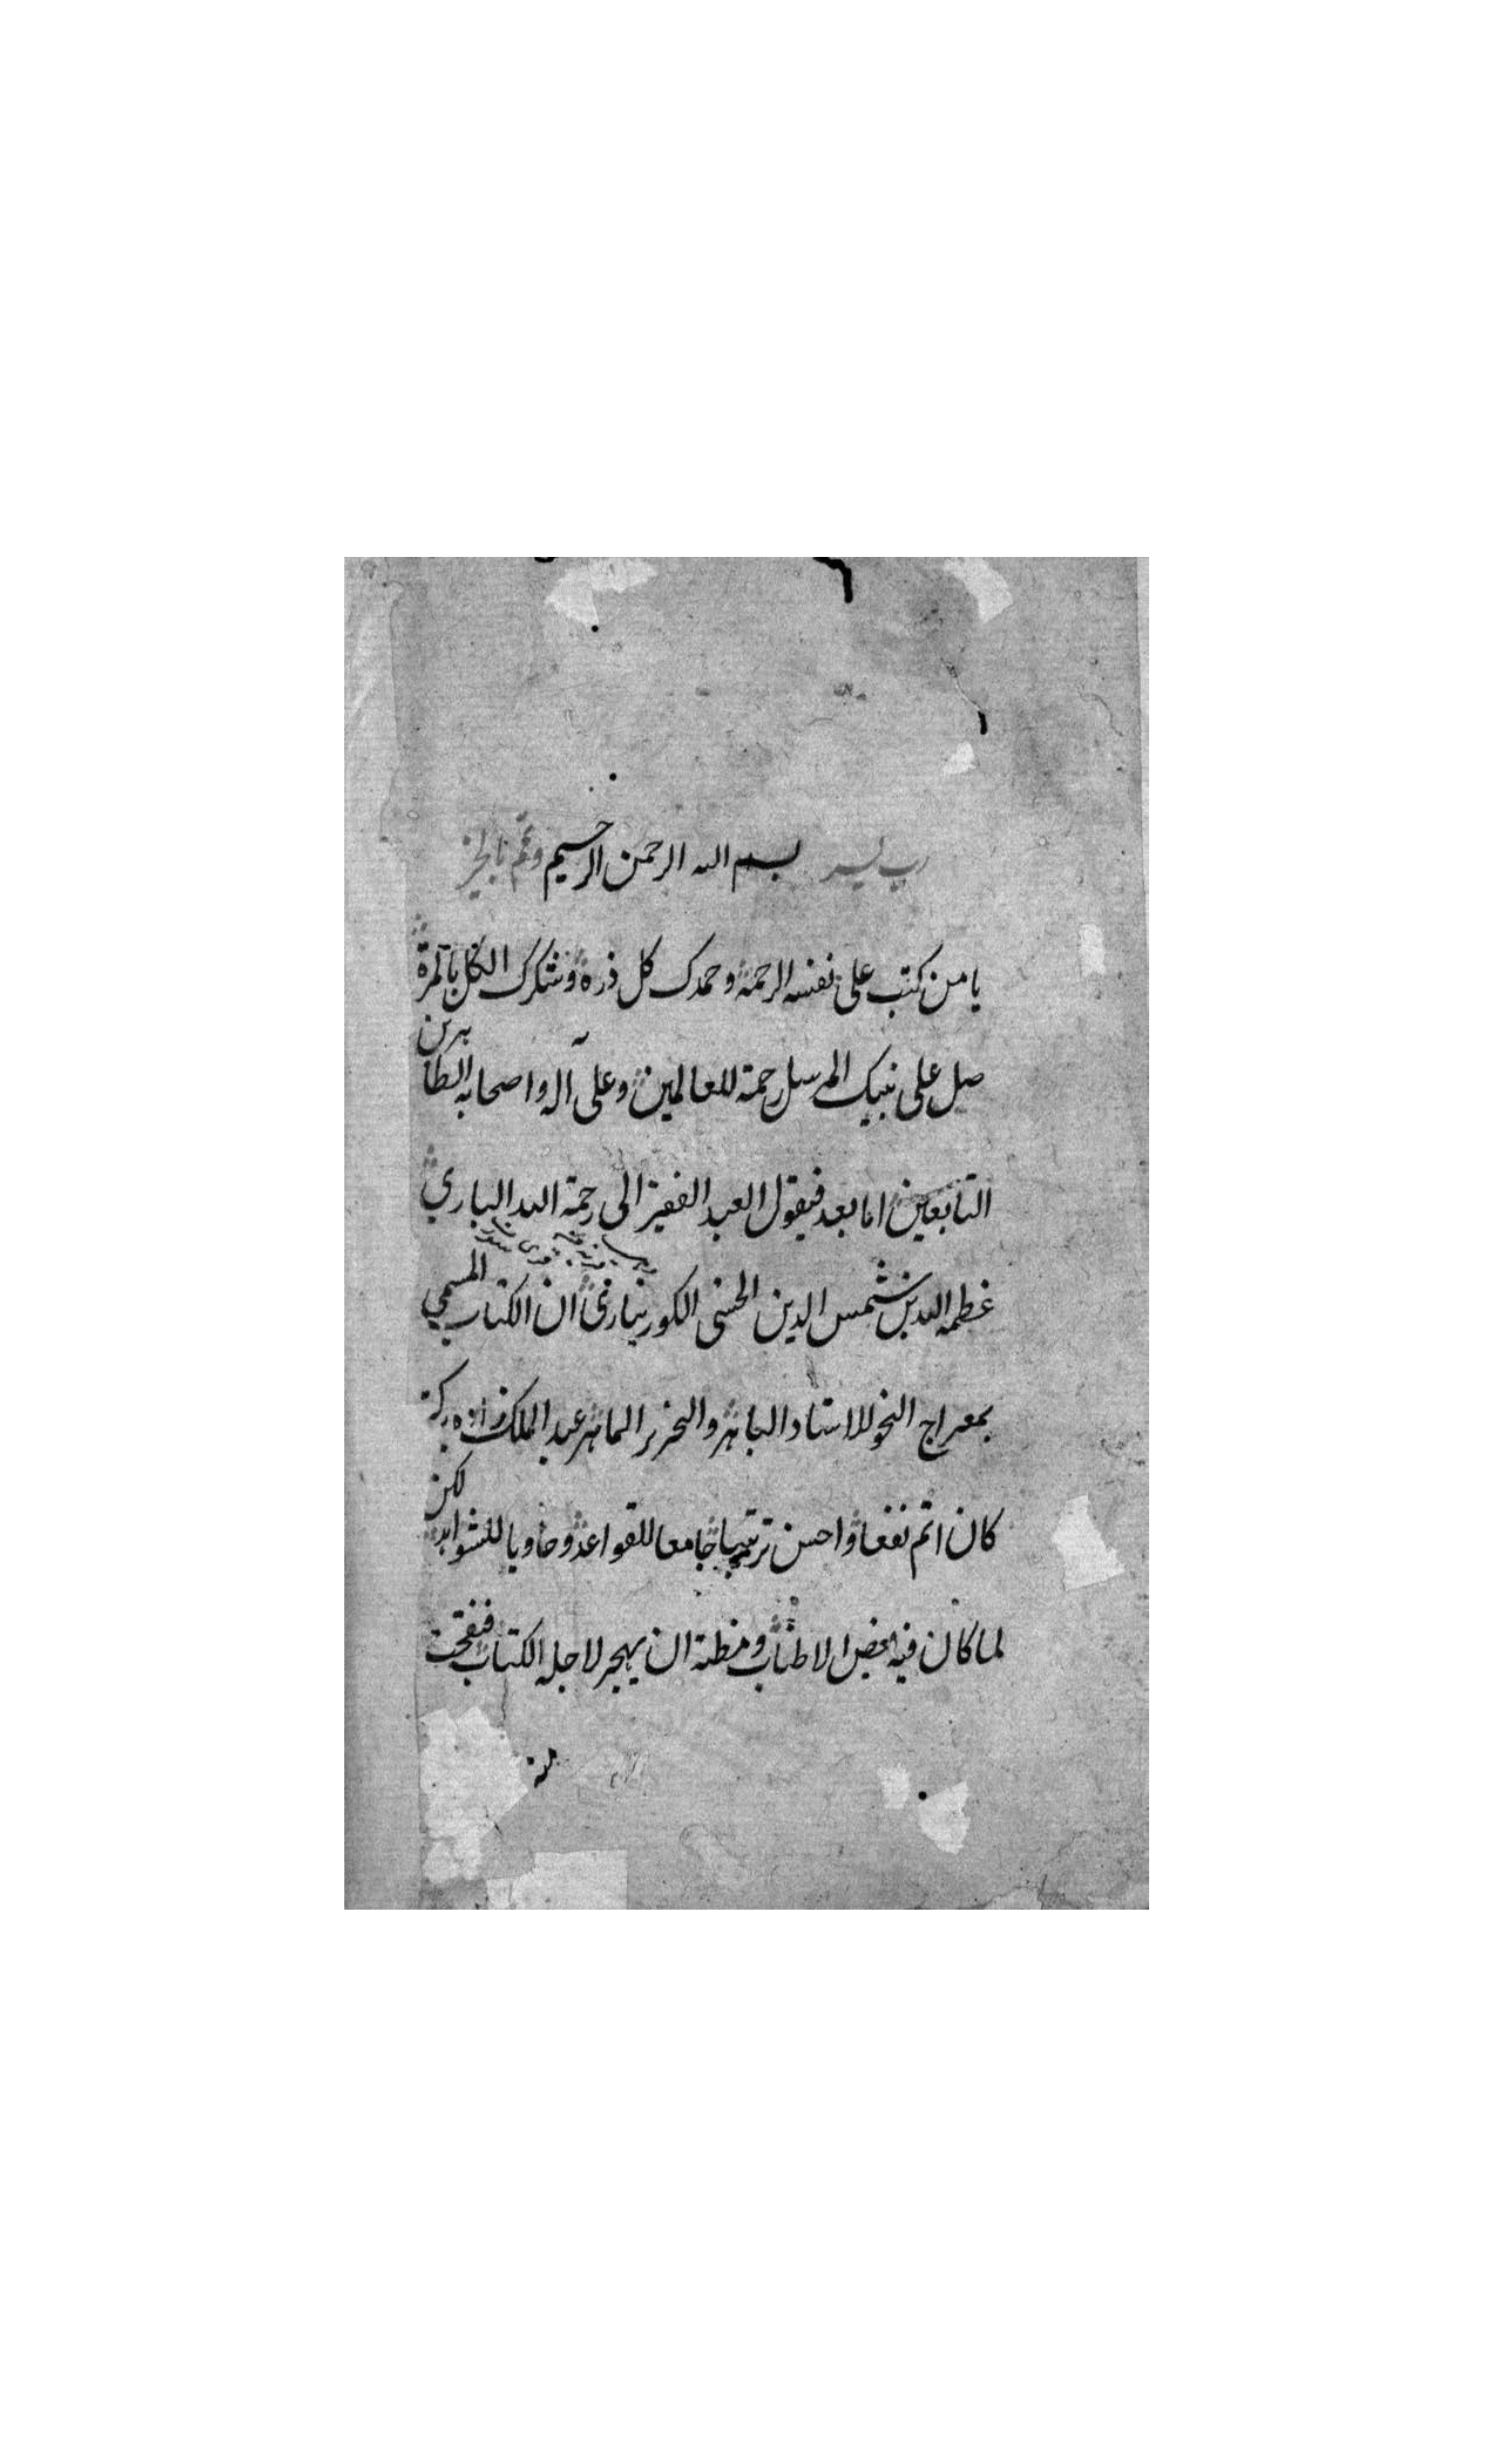 رب يسر بسم الله الرحمن الرحيم وتمم بالخير
يا من كتب على نفسه الرحمة وحمدك كل ذرة وشكرك الكل بالمرة
صل على نبيك المرسل رحمة للعالمين وعلى آله واصحابه الطاهرين
التابعين اما بعد فيقول العبد الفقير الى رحمة الله الباري
عظمة الله بن شمس الدين الحسني ان الكتاب المسمى
بمعراج النحو للاستاد الباهر والنحرير الماهر عبد الملك
كان اتم نفعا واحسن ترتيبا جامعا للقواعد وحاويا للشواهد لكن
لما كان فيه بعض الاطناب ومظنة ان يهجر لاجله الكتاب